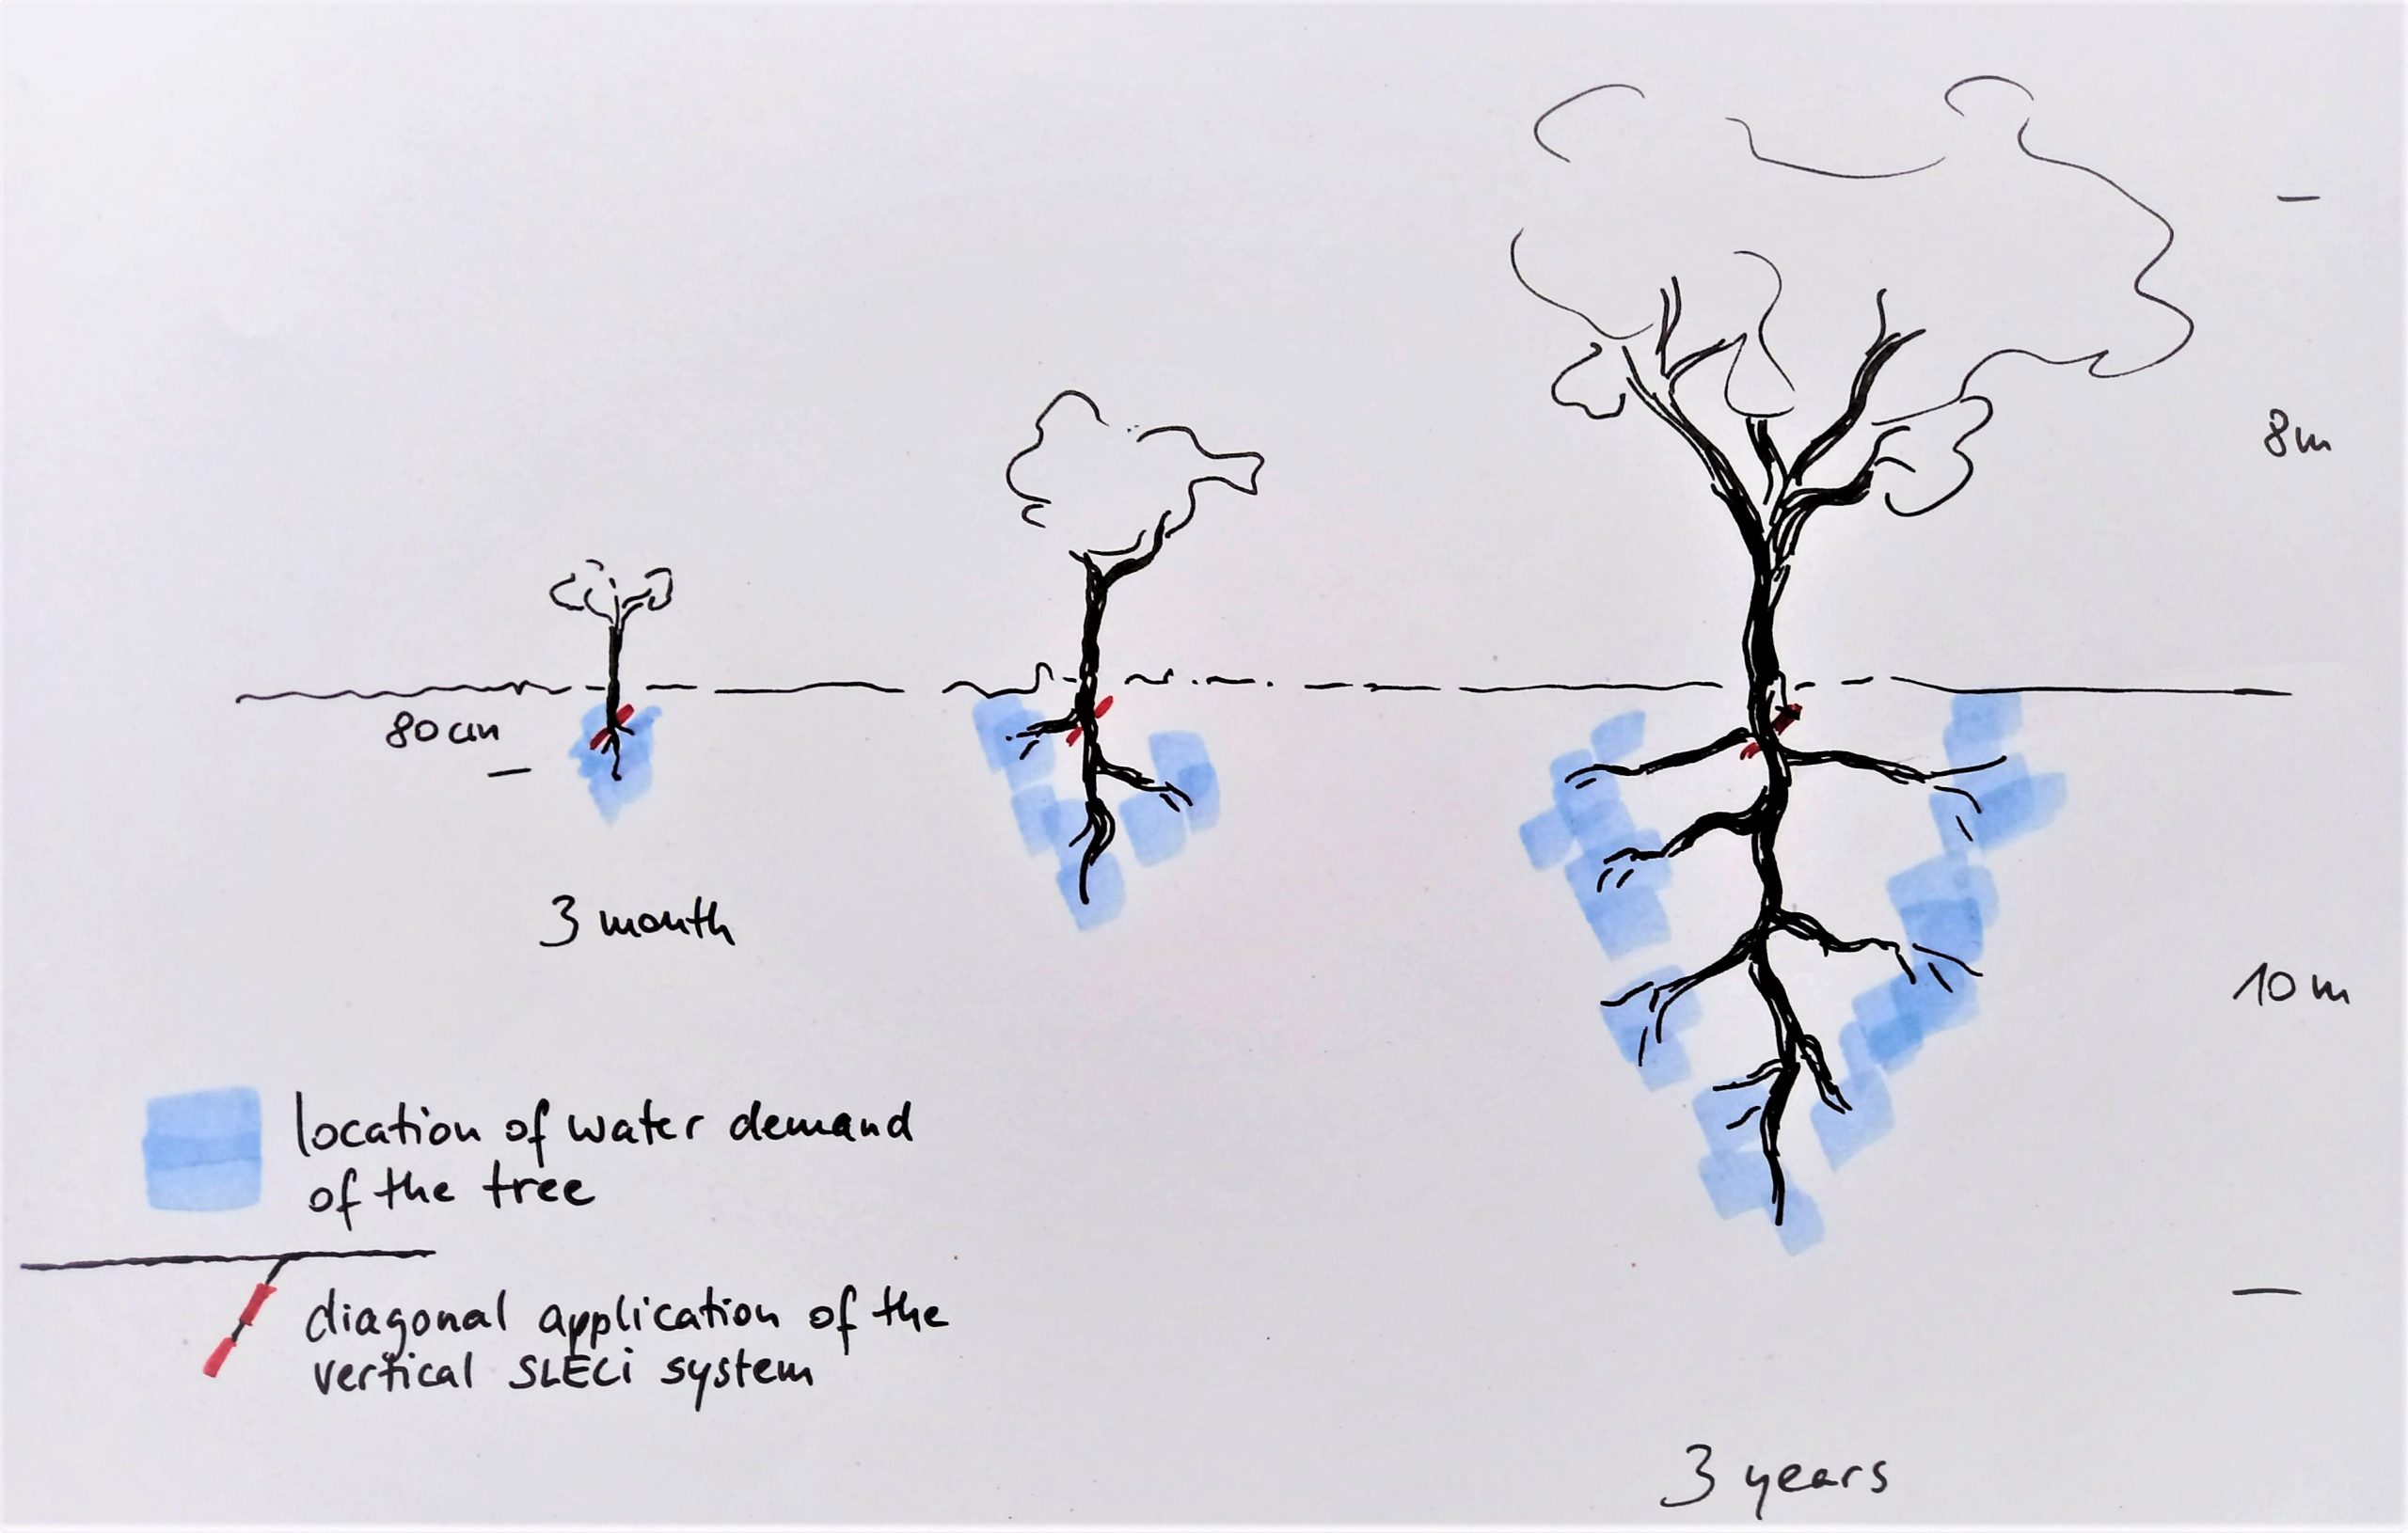 8m
80 cm
3 month
10 m
location of water demand
of the tree
diagonal application of the
vertical SLECi system
3 years